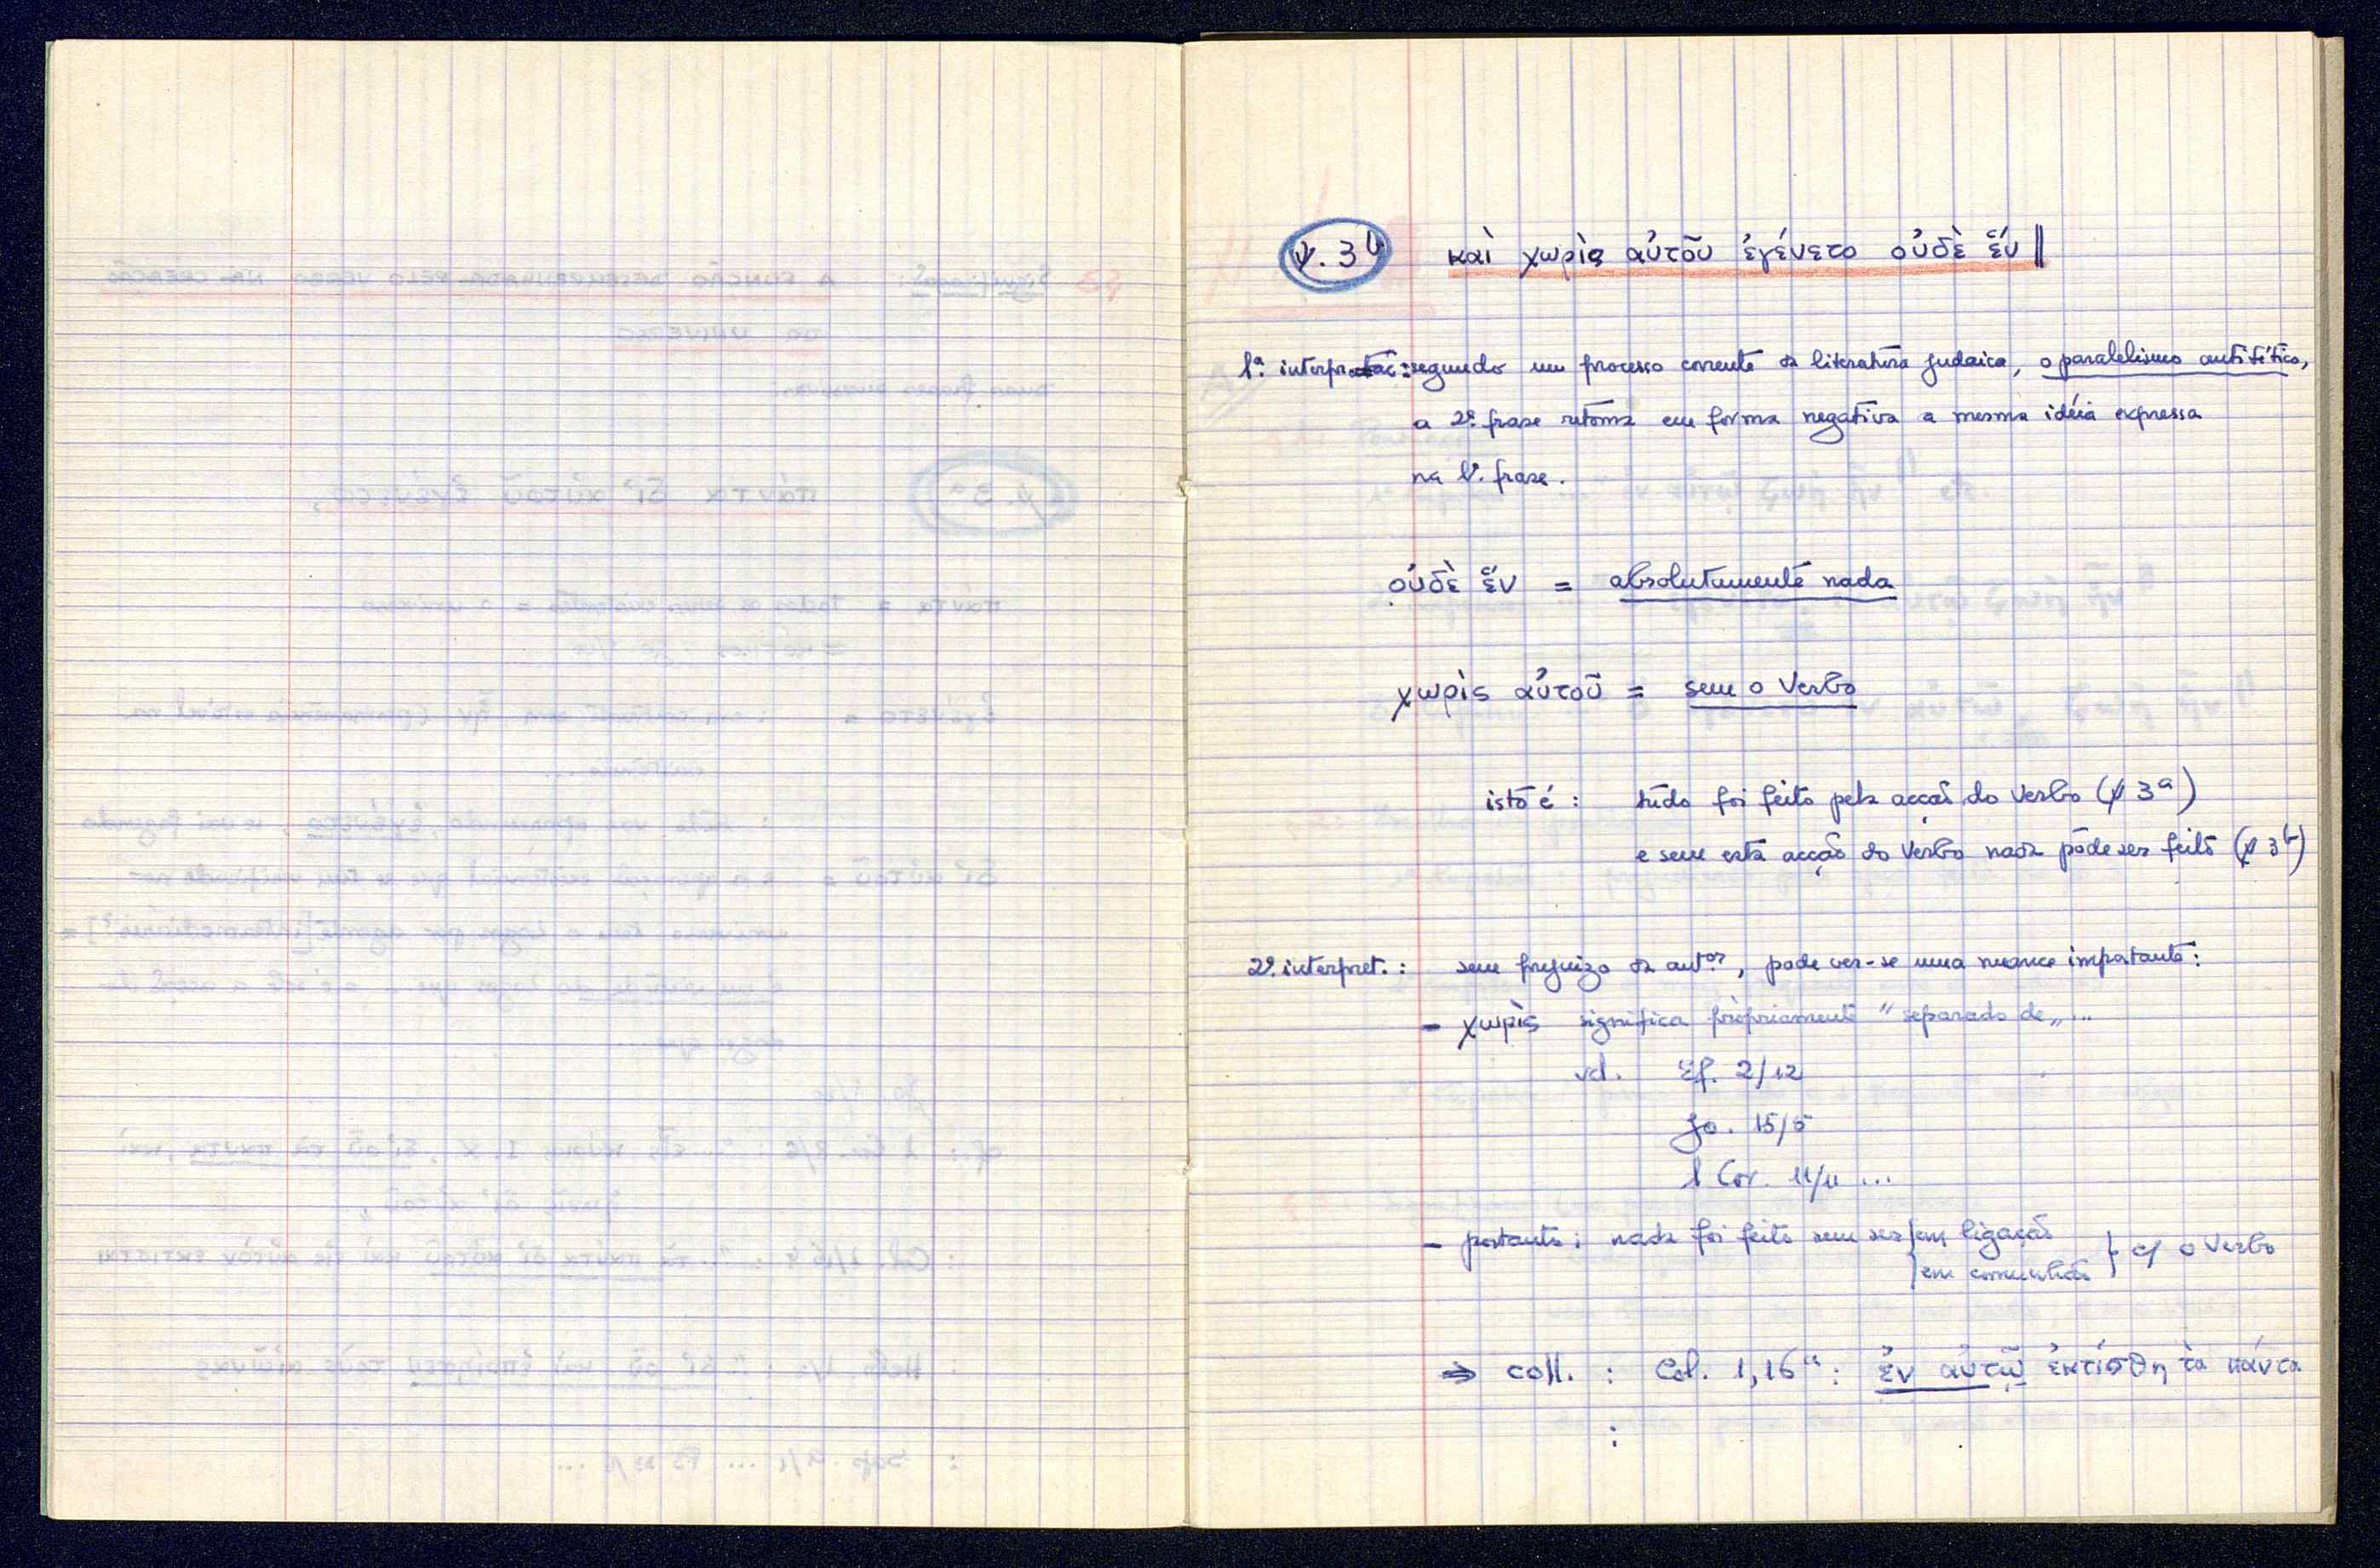 ℣. 3b καὶ χωρὶς αὐτοῦ ἐγένετο οὐδὲ ἕν ||
1ª. interpretaç: segundo um processo corrente da literatura judaica, o paralelismo antitético,
a 2ª. frase retoma em forma negativa a mesma idéia expressa
na 1ª. frase.
οὐδὲ ἕν = absolutamente nada
χωρὶς αὐτοῦ = sem o Verbo
isto é : tudo foi feito pela acção do Verbo (℣ 3a)
e sem esta acção do Verbo nada pôde ser feito (℣ 3b)
2ª. interpret. : sem prejuizo da antor, pode ver-se uma nuance importante :
– χωρὶς significa pròpriamente "separado de" ...
vd. Ef. 2/12
Jo. 15/5
1 Cor. 11/11 ...
– portanto : nada foi feito sem ser { em ligação
{ em comunhão } c/ o Verbo
⇒ coll. : Col. 1,16a : ἐν αὐτῷ ἐκτίσθη τὰ πάντα
: